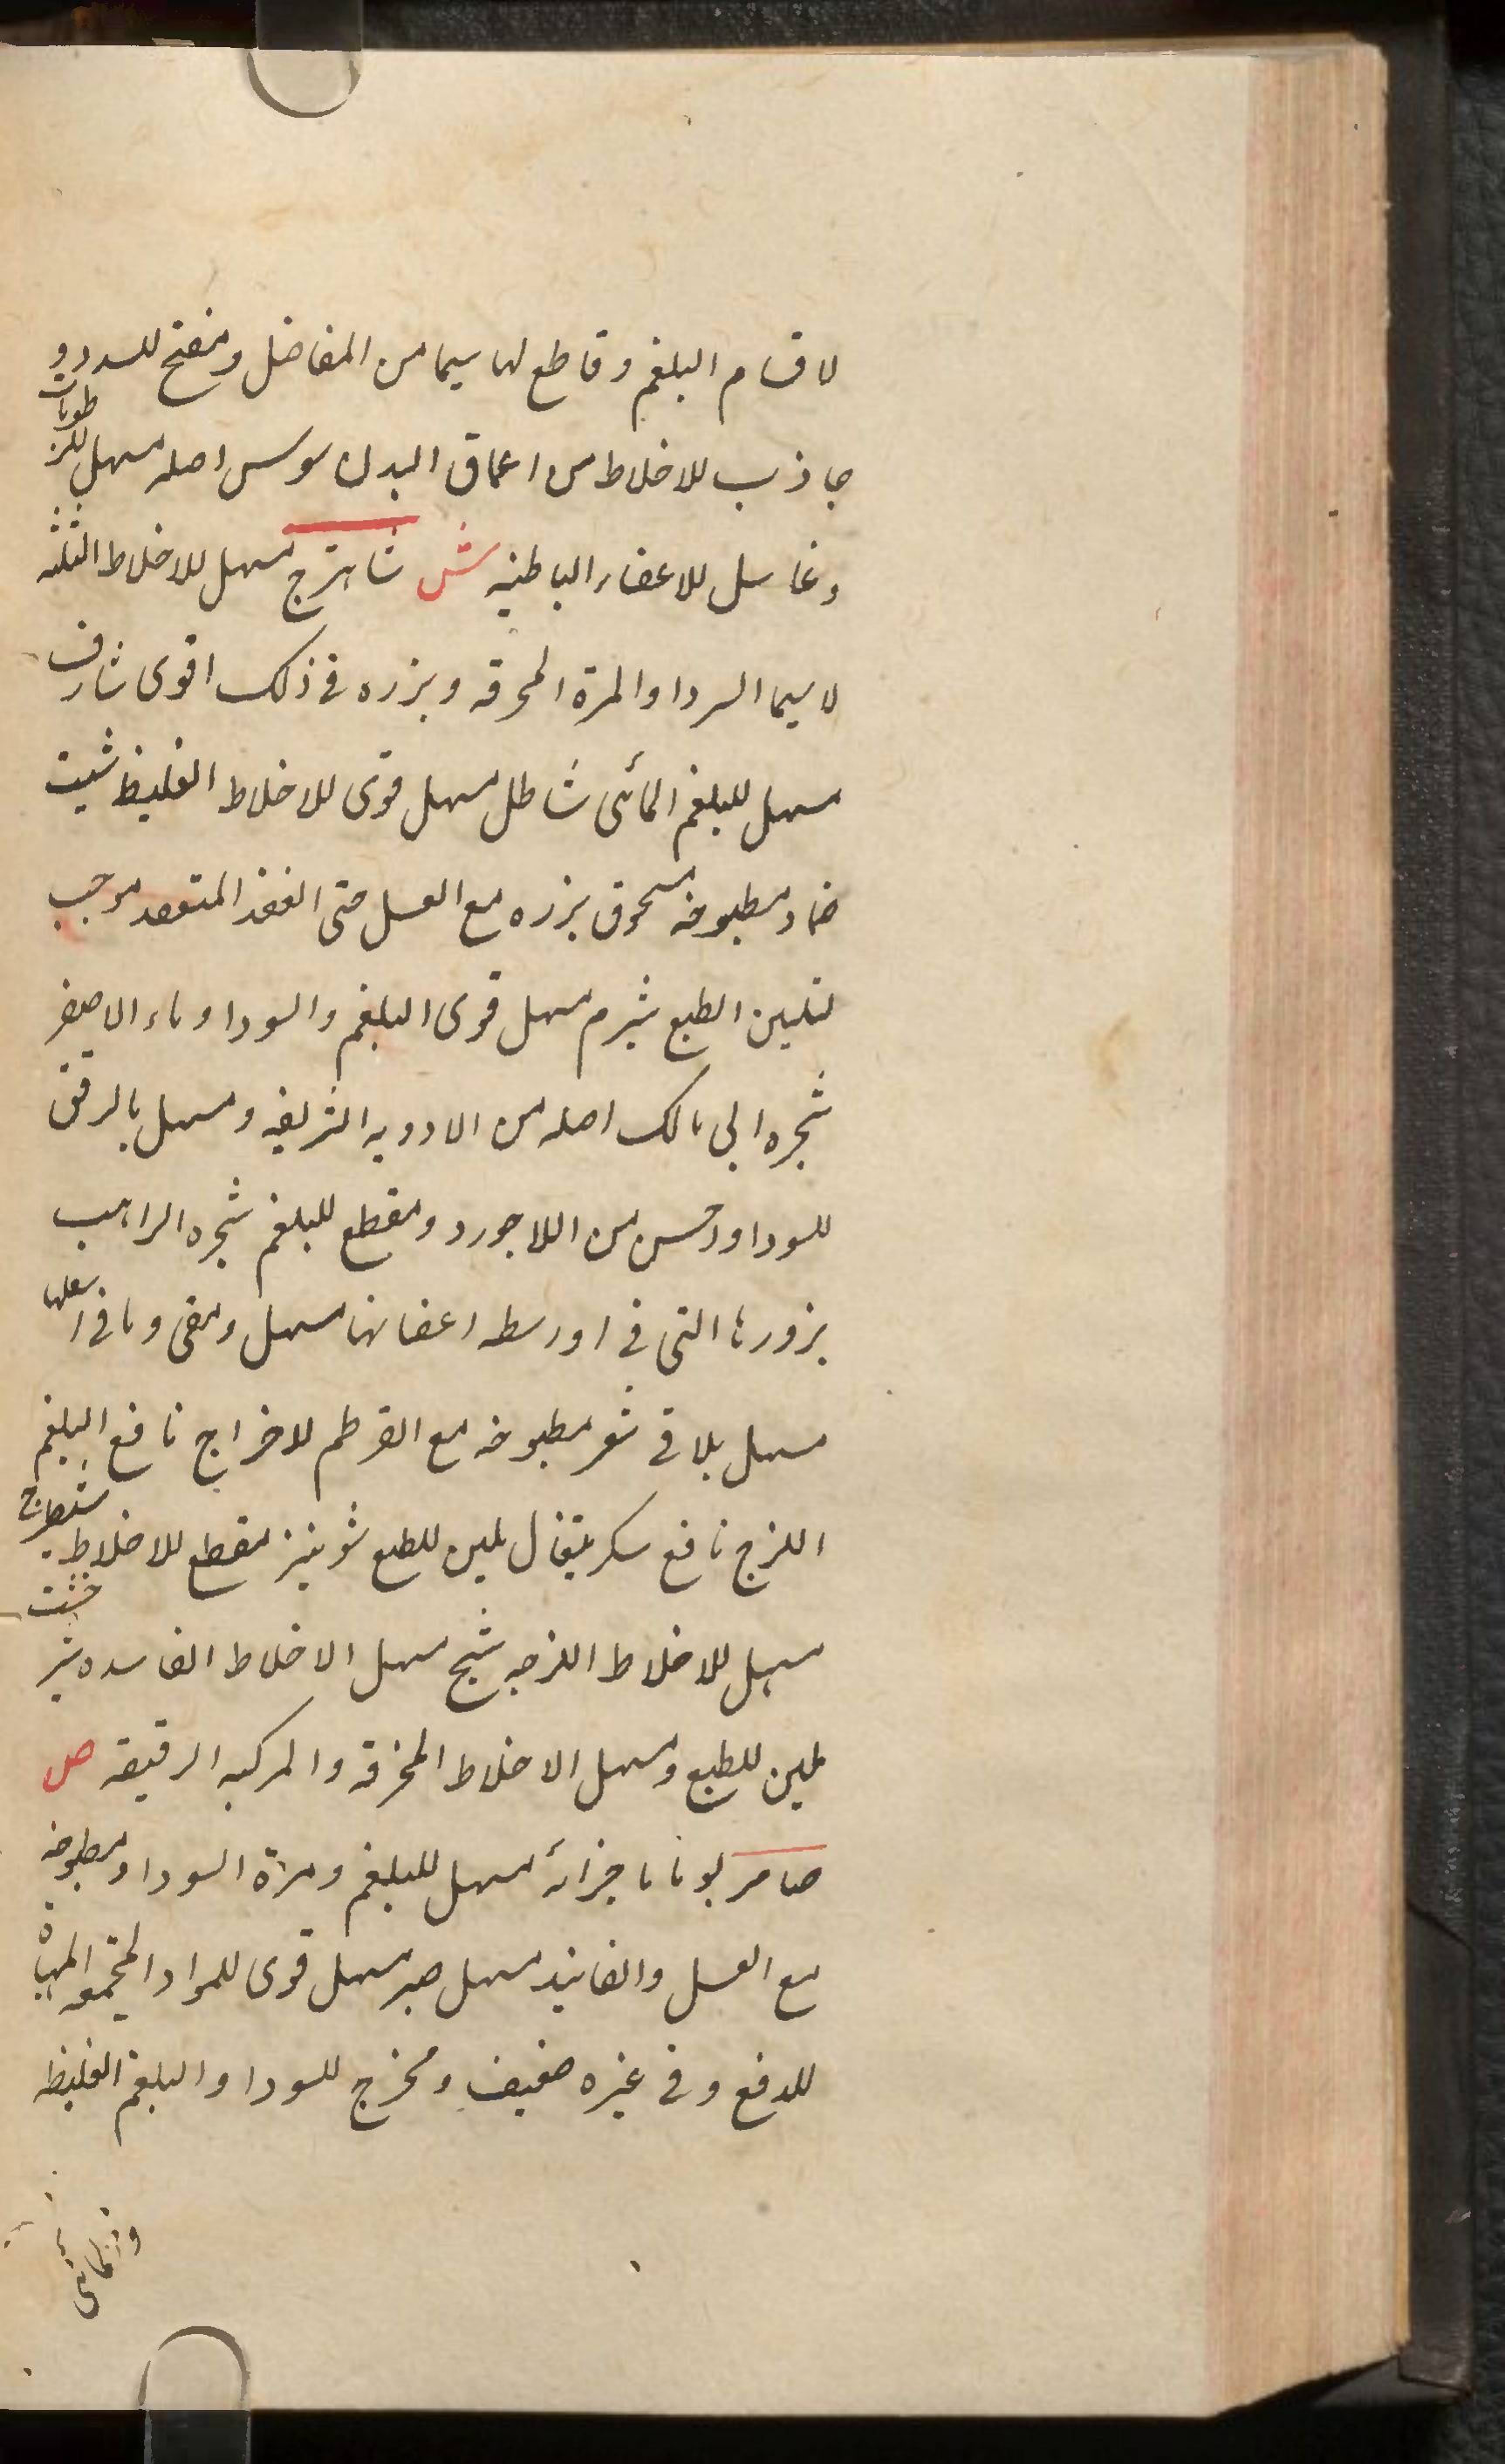 لاقسام البلغم وقاطع لها سیما من المفاصل ومفتح للسدد و
جاذب للاخلاط من اعماق البدن سوسن اصله مسهل للرطوبات
وغاسل للاعضاء الباطنیه ش شاهترج مسهل للاخلاط الثلثه
لا سیما السودا والمرة المحرقه وبزره فی ذلک اقوی شارف
مسهل للبلغم المائی شاطل مسهل قوی للاخلاط الغلیظ شبت
ضماد مطبوخه مسحوق بزره مع العسل حتی انعقد المقعد موجب
لتلیین الطبع شبرم مسهل قوی البلغم والسودا وماء الاصفر
شجره ابی مالک اصله من الادویه الشریفه ومسهل بالرفق
للسودا واحسن من اللاجورد ومقطع للبلغم شجره الراهب
بزورها التی فی اوسطه اغصانها مسهل ومقی وما فی اسفلها
مسهل بلا قی شعر مطبوخه مع القرطم لاخراج نافع البلغم
اللزج نافع سکر بثقال ملین للطبع شونیز مقطع للاخلاط شیطرج
مسهل للاخلاط اللزجه شیح مسهل الاخلاط الفاسده شیر خشت
ملین للطبع ومسهل الاخلاط المحرقه والمرکبه الرقیقه ص
صامر یوما باجزائه مسهل للبلغم ومرة السودا ومطبوخه
مع العسل والفانیذ مسهل صبر مسهل قوی للمواد المجتمعه المهیاة
للدفع وفی غیره ضعیف ومخرج للسودا والبلغم الغلیظه